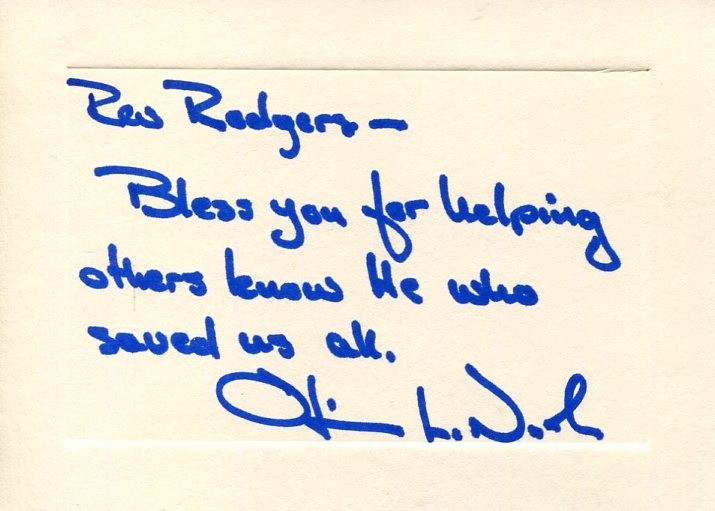 Rev Rodgers —
Bless you for helping
others know He who
saved us all.
Oliver L. North